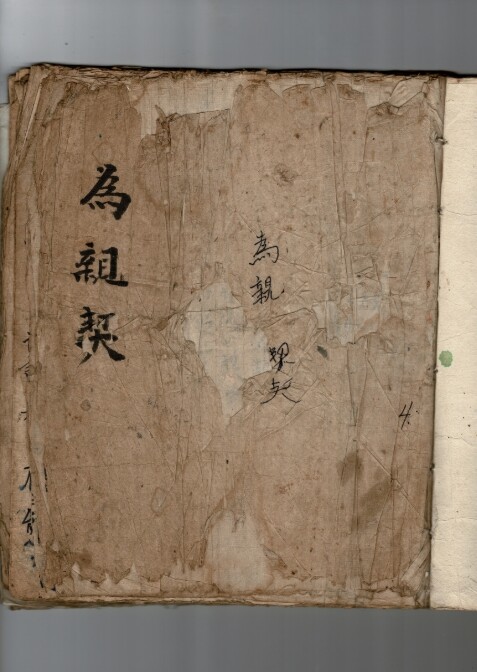 為親契
為親契
4.